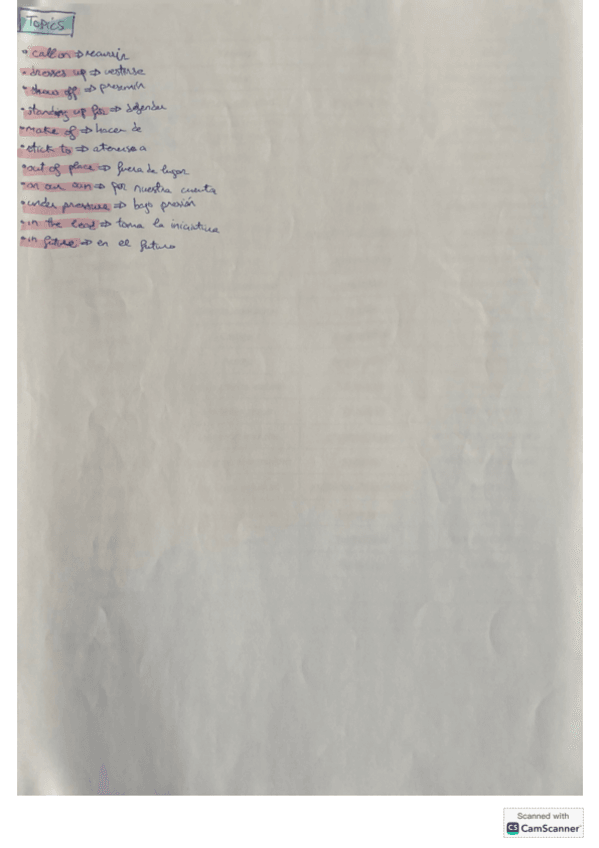 Topics
• call on ⇒ recurrir
• dresses up ⇒ vestirse
• shows off ⇒ presumir
• standing up for ⇒ defender
• make of ⇒ hacer de
• stick to ⇒ atenerse a
• out of place ⇒ fuera de lugar
• on our own ⇒ por nuestra cuenta
• under pressure ⇒ bajo presión
• in the lead ⇒ toma la iniciativa
• in future ⇒ en el futuro
Scanned with
CS CamScanner